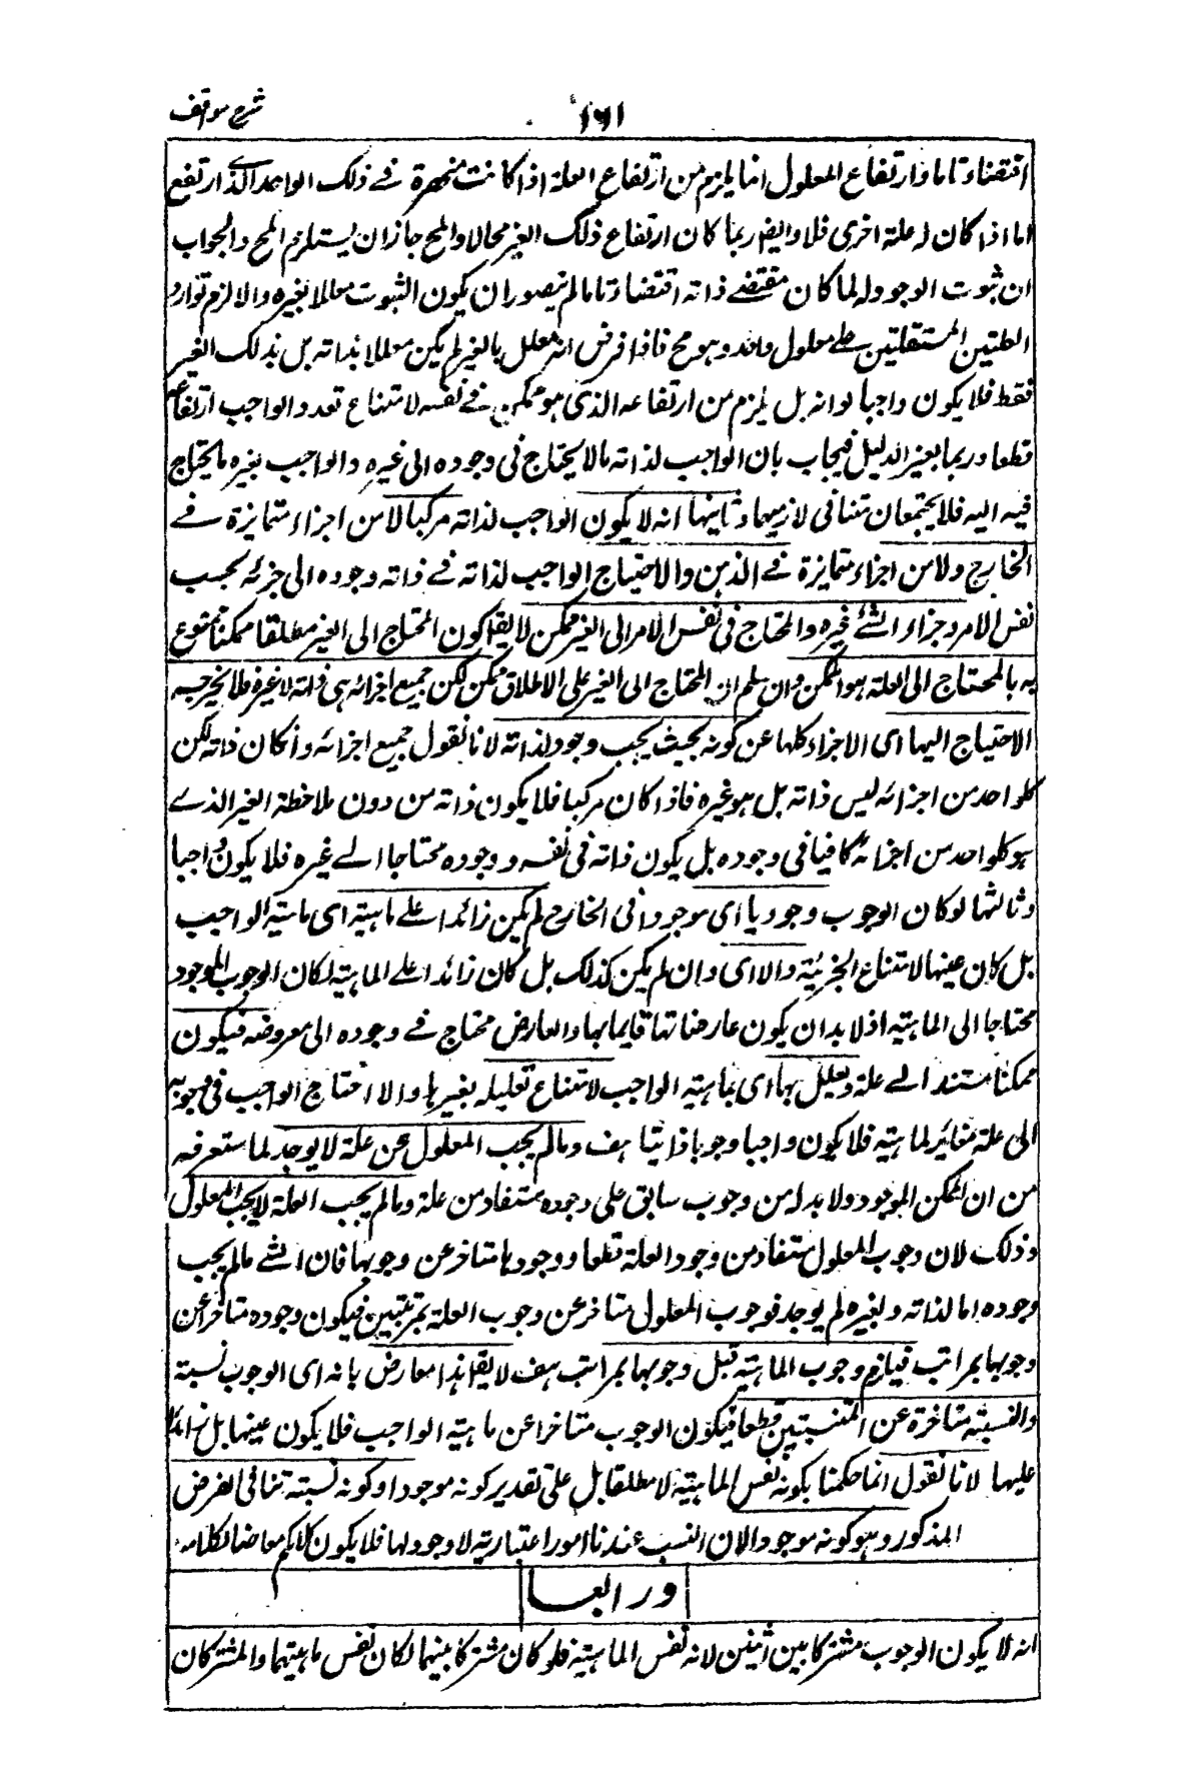 شرح مواقف
۱۶۱
اقتضاء تاما وارتفاع المعلول انما يلزم من ارتفاع العلة اذا كانت منحصرة فے ذلك الواحد الذے ارتفع
اما اذا كان له علة اخرى فلا وايضا ربما كان ارتفاع ذلك الغير محالا والمح جاز ان يستلزم المح والجواب
ان ثبوت الوجود له لما كان مقتضے ذاته اقتضاء تاما لم يتصور ان يكون الثبوت معللا بغيره والا لزم توارد
العلتين المستقلتين علے معلول واحد وهو مح فاذا فرض انه معلل بالغير لم يكن معللا بذاته بل بذلك الغير
فقط فلا يكون واجبا لذاته بل يلزم من ارتفاعه الذى هو ممكن فے نفسه لامتناع تعدد الواجب ارتفاعه
قطعا وربما يغير الدليل فيجاب بان الواجب لذاته مالا يحتاج فى وجوده الى غيره والواجب بغيره ما يحتاج
فيه اليه فلا يجتمعان لتنافى لازميهما وثانيها انه لا يكون الواجب لذاته مركبا لا من اجزاء متمايزة فے
الخارج ولا من اجزاء متمايزة فے الذهن والا احتاج الواجب لذاته فے ذاته ووجوده الى جزئه بحسب
نفس الامر وجزء الشئ غيره والمحتاج فى نفس الامر الى الغير ممكن لا يقا كون المحتاج الى الغير مطلقا ممكنا ممنوع
بل المحتاج الى العلة هو الممكن وان سلم ان المحتاج الى الغير على الاطلاق ممكن لكن جميع اجزائه هى ذاته لا غيره فلا يخرجه
الاحتياج اليها اى الاجزاء كلها عن كونه بحيث يجب وجوده لذاته لانا نقول جميع اجزائه وان كان ذاته لكن
كلواحد من اجزائه ليس ذاته بل هو غيره فاذا كان مركبا فلا يكون ذاته من دون ملاحظة الغير الذے
هو كلواحد من اجزائه كافيا فى وجوده بل يكون ذاته فى نفسه ووجوده محتاجا الے غيره فلا يكون واجبا
وثالثها لو كان الوجوب وجوديا اى موجودا فى الخارج لم يكن زائدا علے ماهيته اى ماهية الواجب
بل كان عينها لامتناع الجزئية والا اى وان لم يكن كذلك بل كان زائدا علے الماهية لكان الوجوب الموجود
محتاجا الى الماهية اذ لا بد ان يكون عارضا لها قايما بها والعارض محتاج فے وجوده الى معروضه فيكون
ممكنا مستندا الے علة ويعلل بها اى بماهية الواجب لامتناع تعليله بغيرها والا احتاج الواجب فى وجوبه
الى علة مغائر لماهيته فلا يكون واجبا وجوبا ذاتيا هف ومالم يجب المعلول عن علة لا يوجد لما ستعرفه
من ان الممكن الموجود ولا بد له من وجوب سابق على وجوده مستفاد من علة ومالم يجب العلة لا يجب المعلول
وذلك لان وجوب المعلول مستفاد من وجود العلة قطعا ووجودها متاخر عن وجوبها فان الشے مالم يجب
وجوده اما لذاته و لغيره لم يوجد فوجوب المعلول متاخر عن وجوب العلة بمرتبتين فيكون وجوده متاخرا عن
وجوبها بمراتب فيلزم وجوب الماهية قبل وجوبها بمراتب هف لا يقا هذا معارض بانه اى الوجوب نسبة
والنسبة متاخرة عن المنتسبين قطعا فيكون الوجوب متاخرا عن ماهية الواجب فلا يكون عينها بل زائدا
عليها لانا نقول انما حكمنا بكونه نفس الماهية لا مطلقا بل على تقدير كونه موجودا وكونه نسبة تنافى الفرض
المذكور وهو كونه موجودا لان النسب عندنا امور اعتبارية لا وجود لها فلا يكون كلاكم معارضا لكلامه
ورابعا
انه لا يكون الوجوب مشتركا بين اثنين لانه نفس الماهية فلو كان مشتركا بينهما لكان نفس ماهيتهما والمشتركان